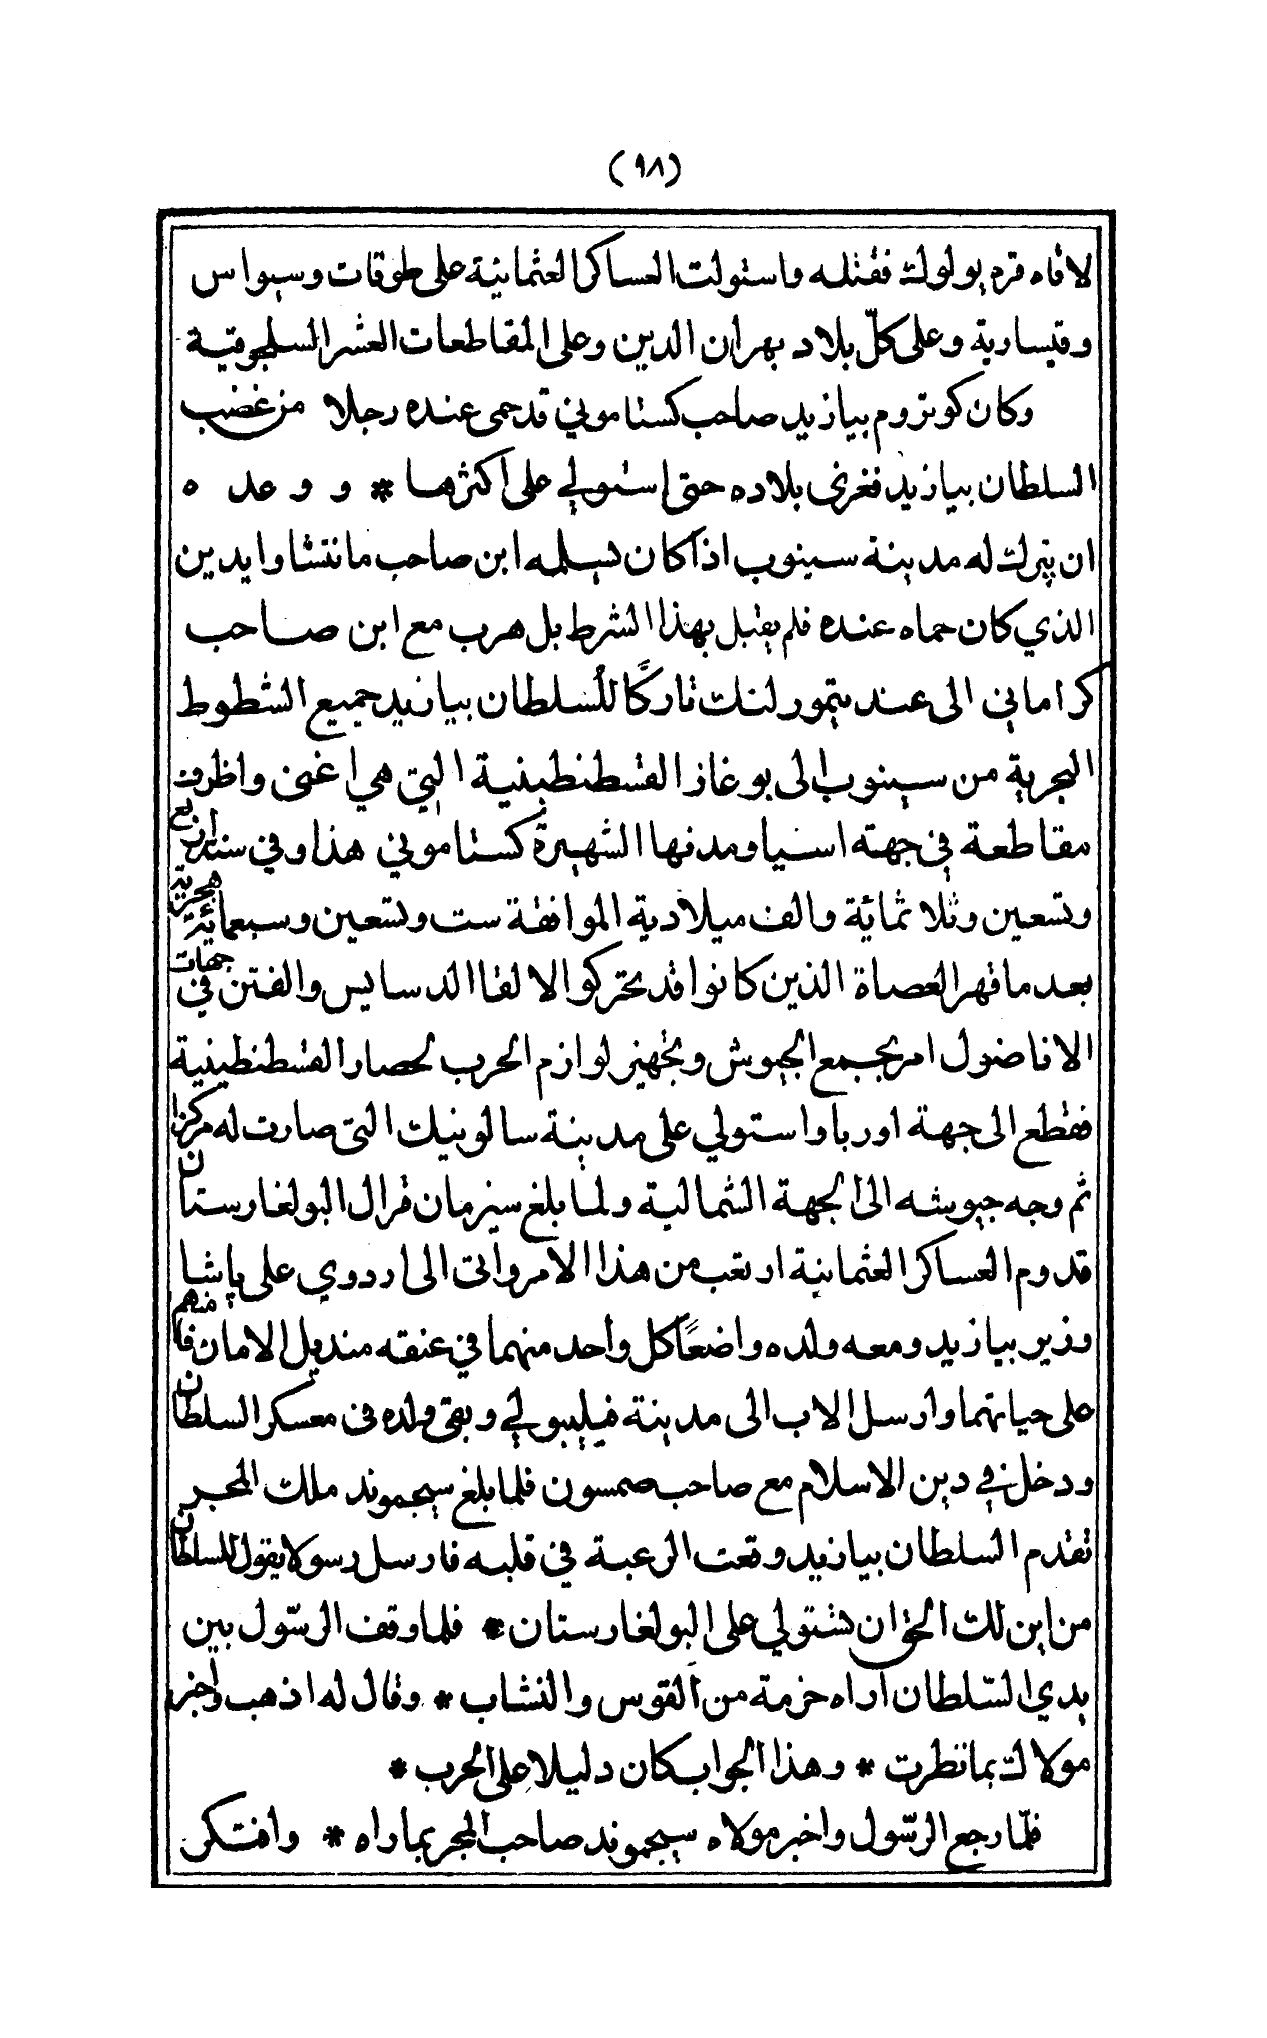 (٩٨)
لاقاه قرم يولوك فقتله واستولت العساكر العثمانية على طوقات وسيواس
وقيسارية وعلى كلّ بلاد بهران الدين وعلى المقاطعات العشر السلجوقية
وكان كوتروم بيازيد صاحب كستاموني قد حمى عنده رجلا من غضب
السلطان بيازيد فغزى بلاده حتى استولي على أكثرها * و وعده
ان يترك له مدينة سينوب اذا كان يسلمه ابن صاحب مانتشا وايدين
الذي كان حماه عنده فلم يقبل بهذا الشرط بل هرب مع ابن صاحب
كراماني الى عند تيمور لنك تاركًا للسلطان بيازيد جميع الشطوط
البحرية من سينوب الى بوغاز القسطنطينية التي هي اغنى واظرف
مقاطعة في جهة اسيا ومدنها الشهيرة كستاموني هذا وفي سنة اربع
وتسعين وثلاثمائة والف ميلادية الموافقة ست وتسعين وسبعمائة هجرية
بعد ما قهر العصاة الذين كانوا قد تحركوا لالقا الدسايس والفتن في جهات
الاناضول امر بجمع الجيوش وتجهيز لوازم الحرب لحصار القسطنطينية
فقطع الى جهة اوربا واستولي على مدينة سالونيك التي صارت له مركزا
ثم وجه جيوشه الى الجهة الشمالية ولما بلغ سيزمان قرال البولغارستان
قدوم العساكر العثمانية ارتعب من هذا الامر واتى الى اردوي على پاشا
وزير بيازيد ومعه ولده واضعًا كل واحد منهما في عنقه منديل الامان فامنهم
على حياتهما وارسل الاب الى مدينة فيليبولي وبقي ولده في معسكر السلطان
ودخل في دين الاسلام مع صاحب صمسون فلما بلغ سيجموند ملك المجر
تقدم السلطان بيازيد وقعت الرعبة في قلبه فارسل رسولا يقول للسلطان
من اين لك الحق ان تستولي على البولغارستان * فلما وقف الرسّول بين
يدي السّلطان اراه حزمة من القوس والنشاب * وقال له اذهب واخبر
مولاك بما نظرت * وهذا الجواب كان دليلا على الحرب *
فلمّا رجع الرسّول واخبر مولاه سيجموند صاحب المجر بما راه * وافتكر